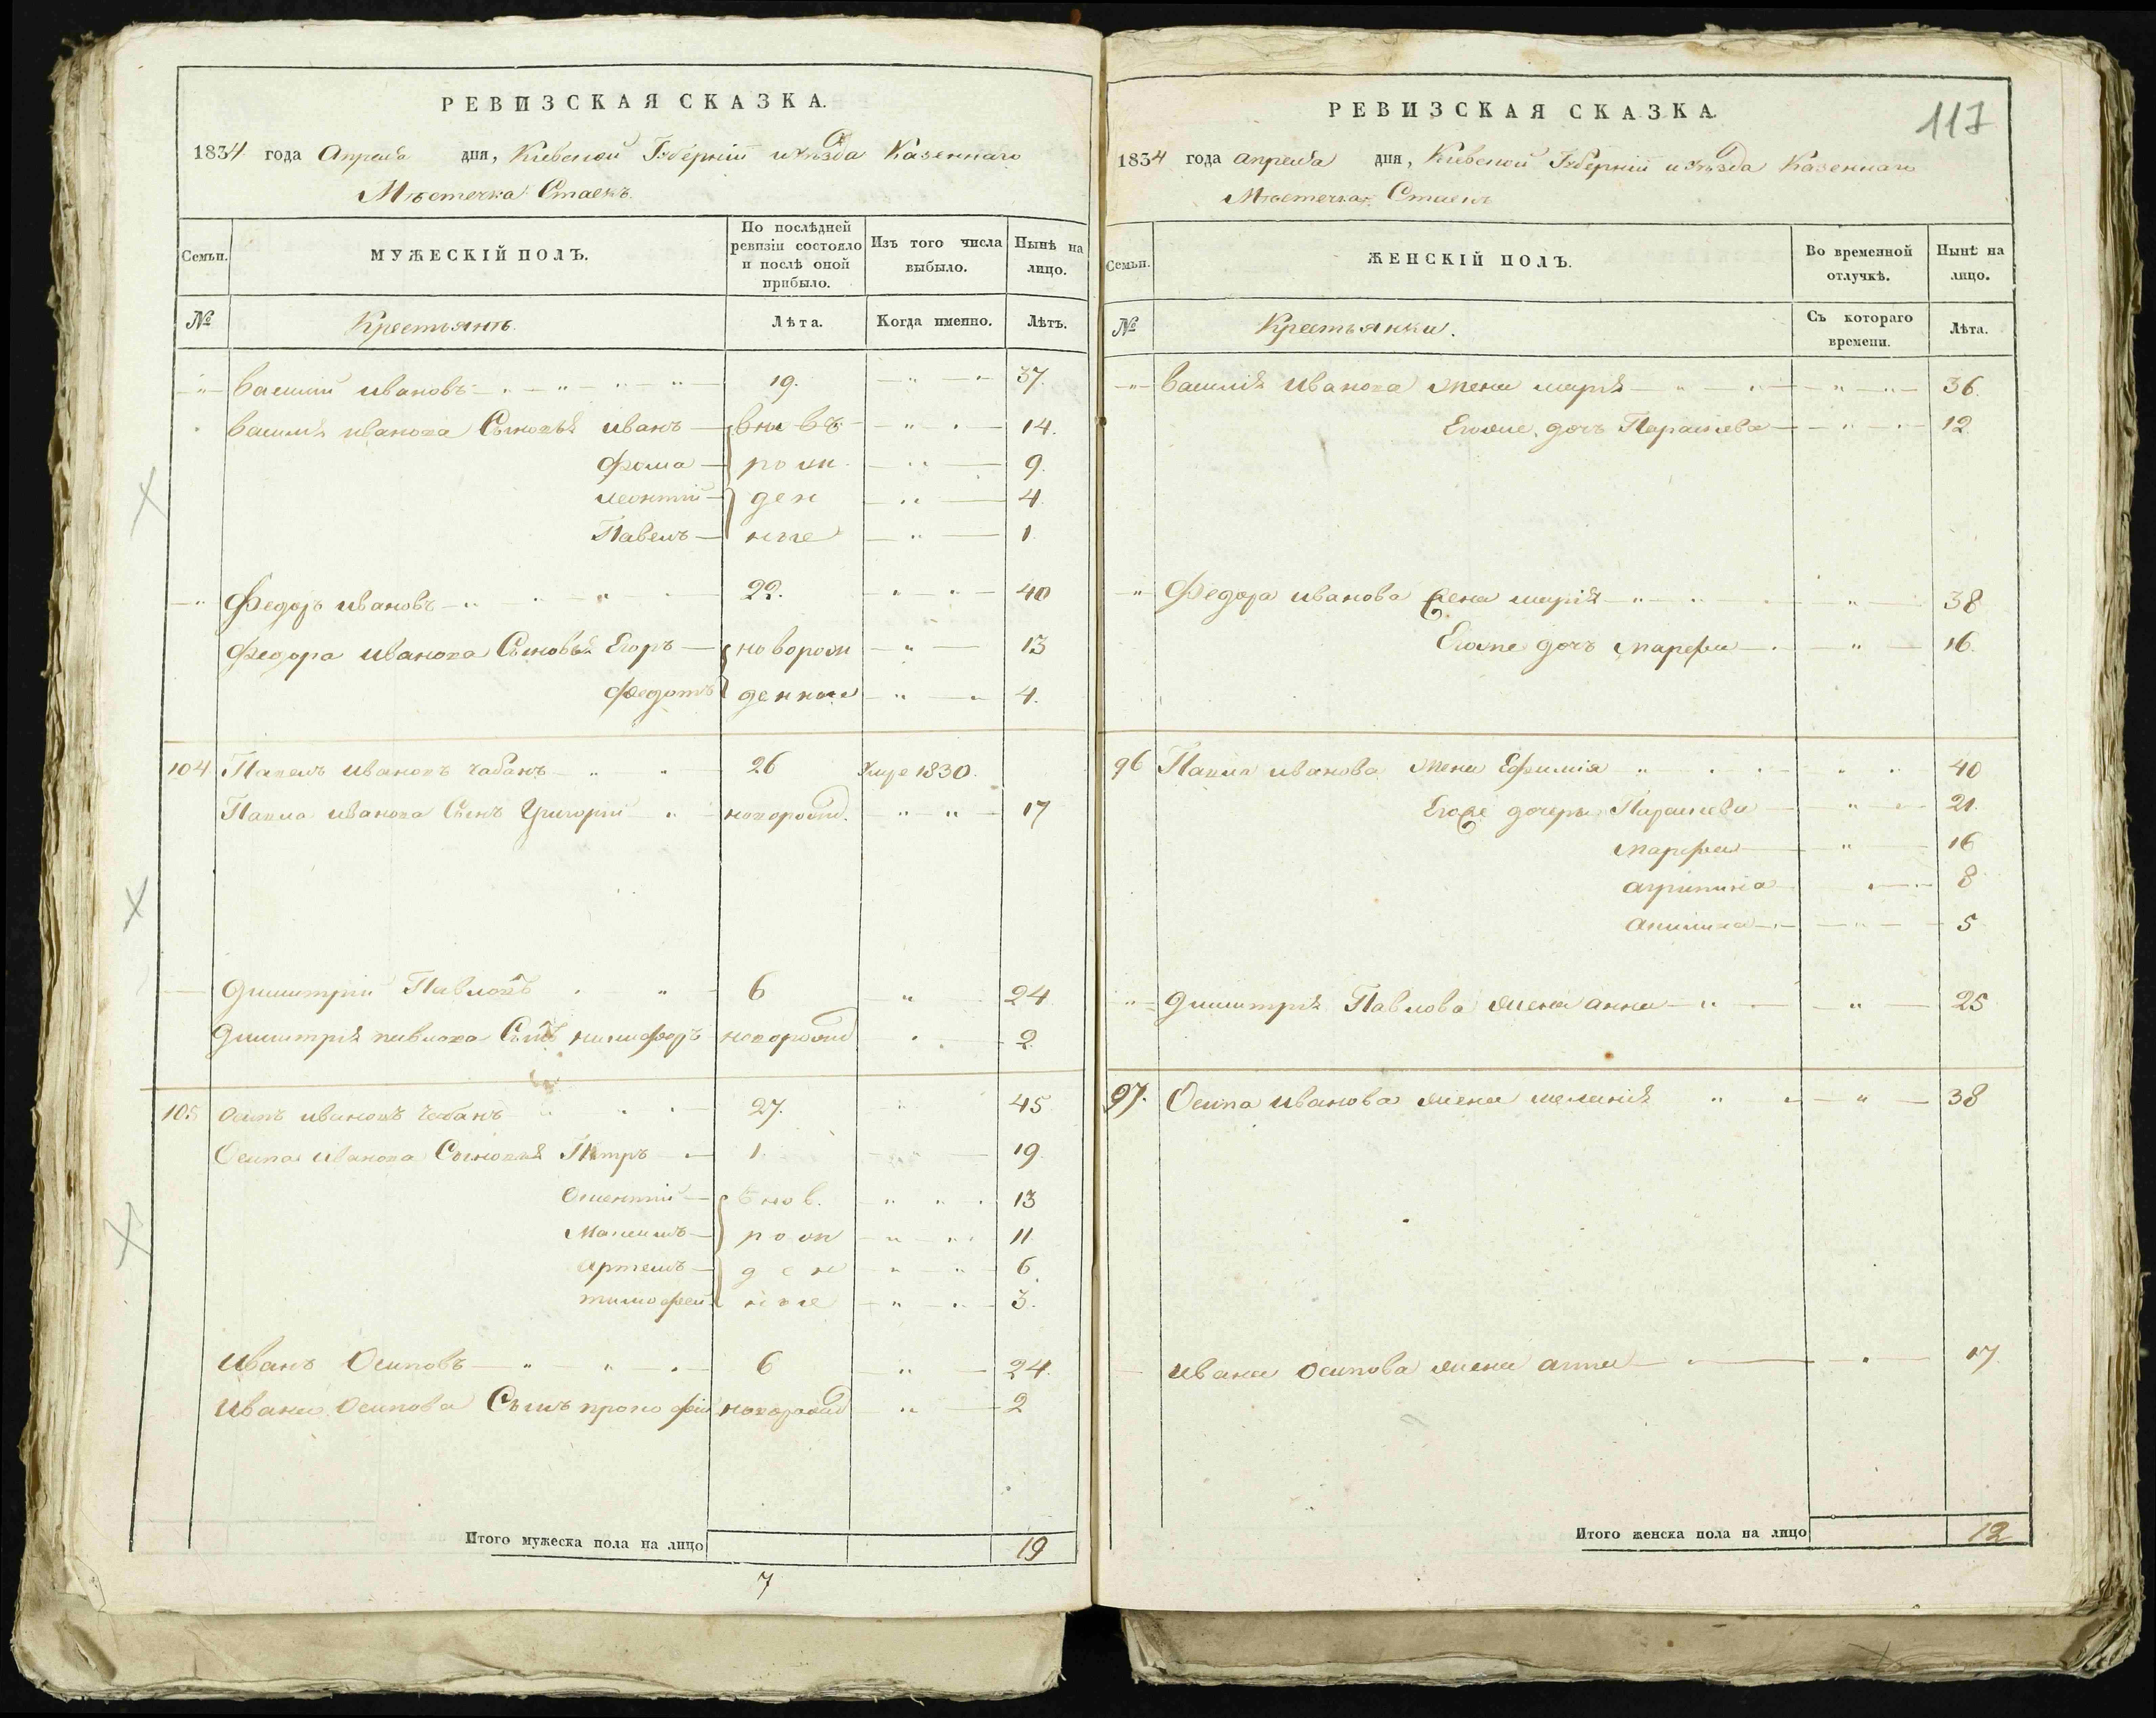 РЕВИЗСКАЯ СКАЗКА.
1834 года Апреля дня, Киевской Губернїи и уѣзда Казеннаго
Мѣстечка Стаекъ.
Семьи. МУЖЕСКІЙ ПОЛЪ. По послѣдней ревизіи состояло и послѣ оной прибыло. Изъ того числа выбыло. Нынѣ на лицо.
№ Крестьянъ. Лѣта. Когда именно. Лѣтъ.
Василий Ивановъ 19. 37.
Василія Иванова Сыновья Иванъ вновъ 14.
Фома рож 9.
Леонтій ден 4.
Павелъ ные 1.
Федоръ Ивановъ 22. 40
Федора Иванова Сыновья Егоръ новорож 13
Федотъ денные 4.
104 Павелъ Ивановъ Чабанъ 26 Умре 1830.
Павла Иванова Сынъ Григорій новорожд. 17
Димитрій Павловъ 6 24
Димитрія Павлова Сынъ Никифоръ новорожд 2.
105 Осипъ Ивановъ Чабанъ 27. 45
Осипа Иванова Сыновья Петръ 1. 19.
внов. 13
Максимъ рож 11
Артемъ ден 6.
Тимофей ные 3.
Иванъ Осиповъ 6 24.
Ивана Осипова Сынъ Прокофій новорожд 2
Итого мужеска пола на лицо 19
7
117
РЕВИЗСКАЯ СКАЗКА
1834 года апреля дня, Киевской Губернїи и уѣзда Казеннаго
Мѣстечка Стаекъ
Семьи. ЖЕНСКІЙ ПОЛЪ. Во временной отлучкѣ. Нынѣ на лицо.
№ Крестьянки. Съ котораго времени. Лѣта.
Василія Иванова жена Марія 36.
Егоже дочь Параскева 12.
Федора Иванова жена Марія 38
Егоже дочь Марфа 16.
96 Павла Иванова жена Ефимія 40
Егоже дочери Параскева 21.
Марфа 16
Агрипина 8
Акилина 5
Димитрія Павлова жена Анна 25
97. Осипа Иванова жена Меланія 38
Ивана Осипова жена Анна 17
Итого женска пола на лицо 12